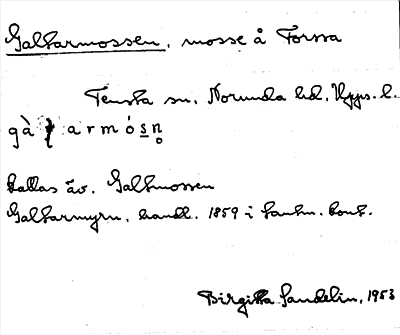 Galtarmossen, mosse å Forssa
Tensta sn. Norunda hd. Upps. l.
gàṭarmósn̥
kallas äv. Galtmossen
Galtarmyrn, handl. 1859 i lantm. kont.
Birgitta Sandelin, 1953